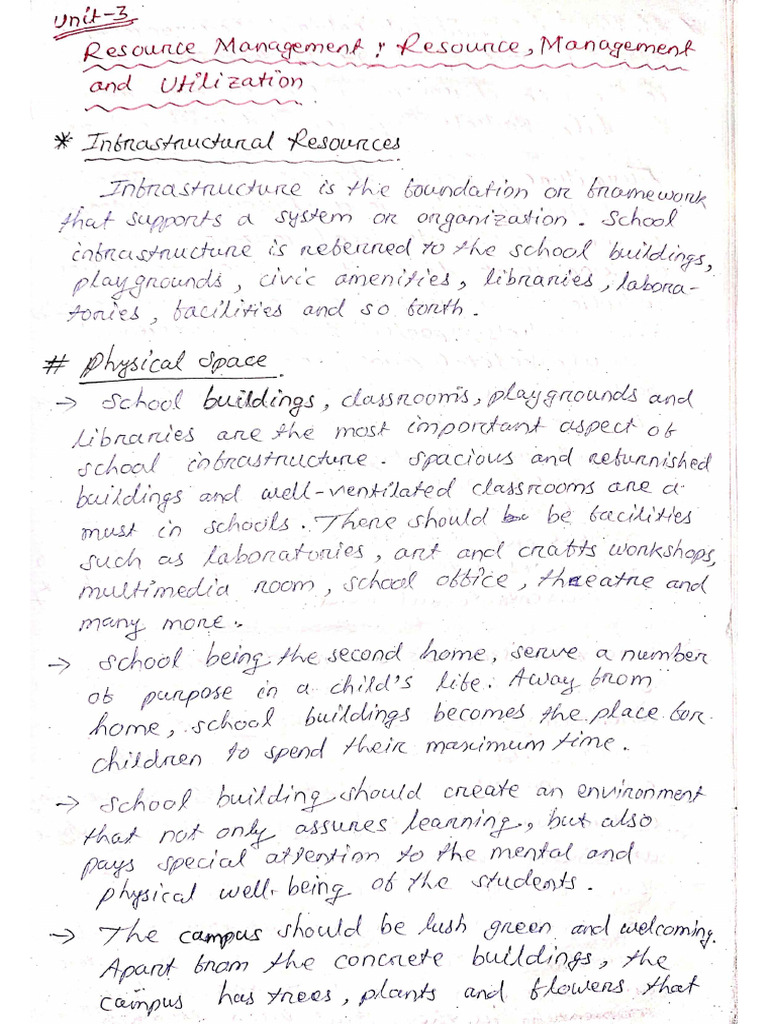 Unit-3
Resource Management: Resource, Management
and Utilization
* Infrastructural Resources
Infrastructure is the foundation or framework
that supports a system or organization. School
infrastructure is referred to the school buildings,
playgrounds, civic amenities, libraries, labora-
tories, facilities and so forth.
# Physical Space
→ School buildings, classrooms, playgrounds and
libraries are the most important aspect of
school infrastructure. Spacious and refurnished
buildings and well-ventilated classrooms are a
must in schools. There should be be facilities
such as laboratories, art and crafts workshops,
multimedia room, school office, theatre and
many more.
→ School being the second home, serve a number
of purpose in a child's life. Away from
home, school buildings becomes the place for
children to spend their maximum time.
→ School building should create an environment
that not only assures learning, but also
pays special attention to the mental and
physical well-being of the students.
→ The campus should be lush green and welcoming.
Apart from the concrete buildings, the
campus has trees, plants and flowers that